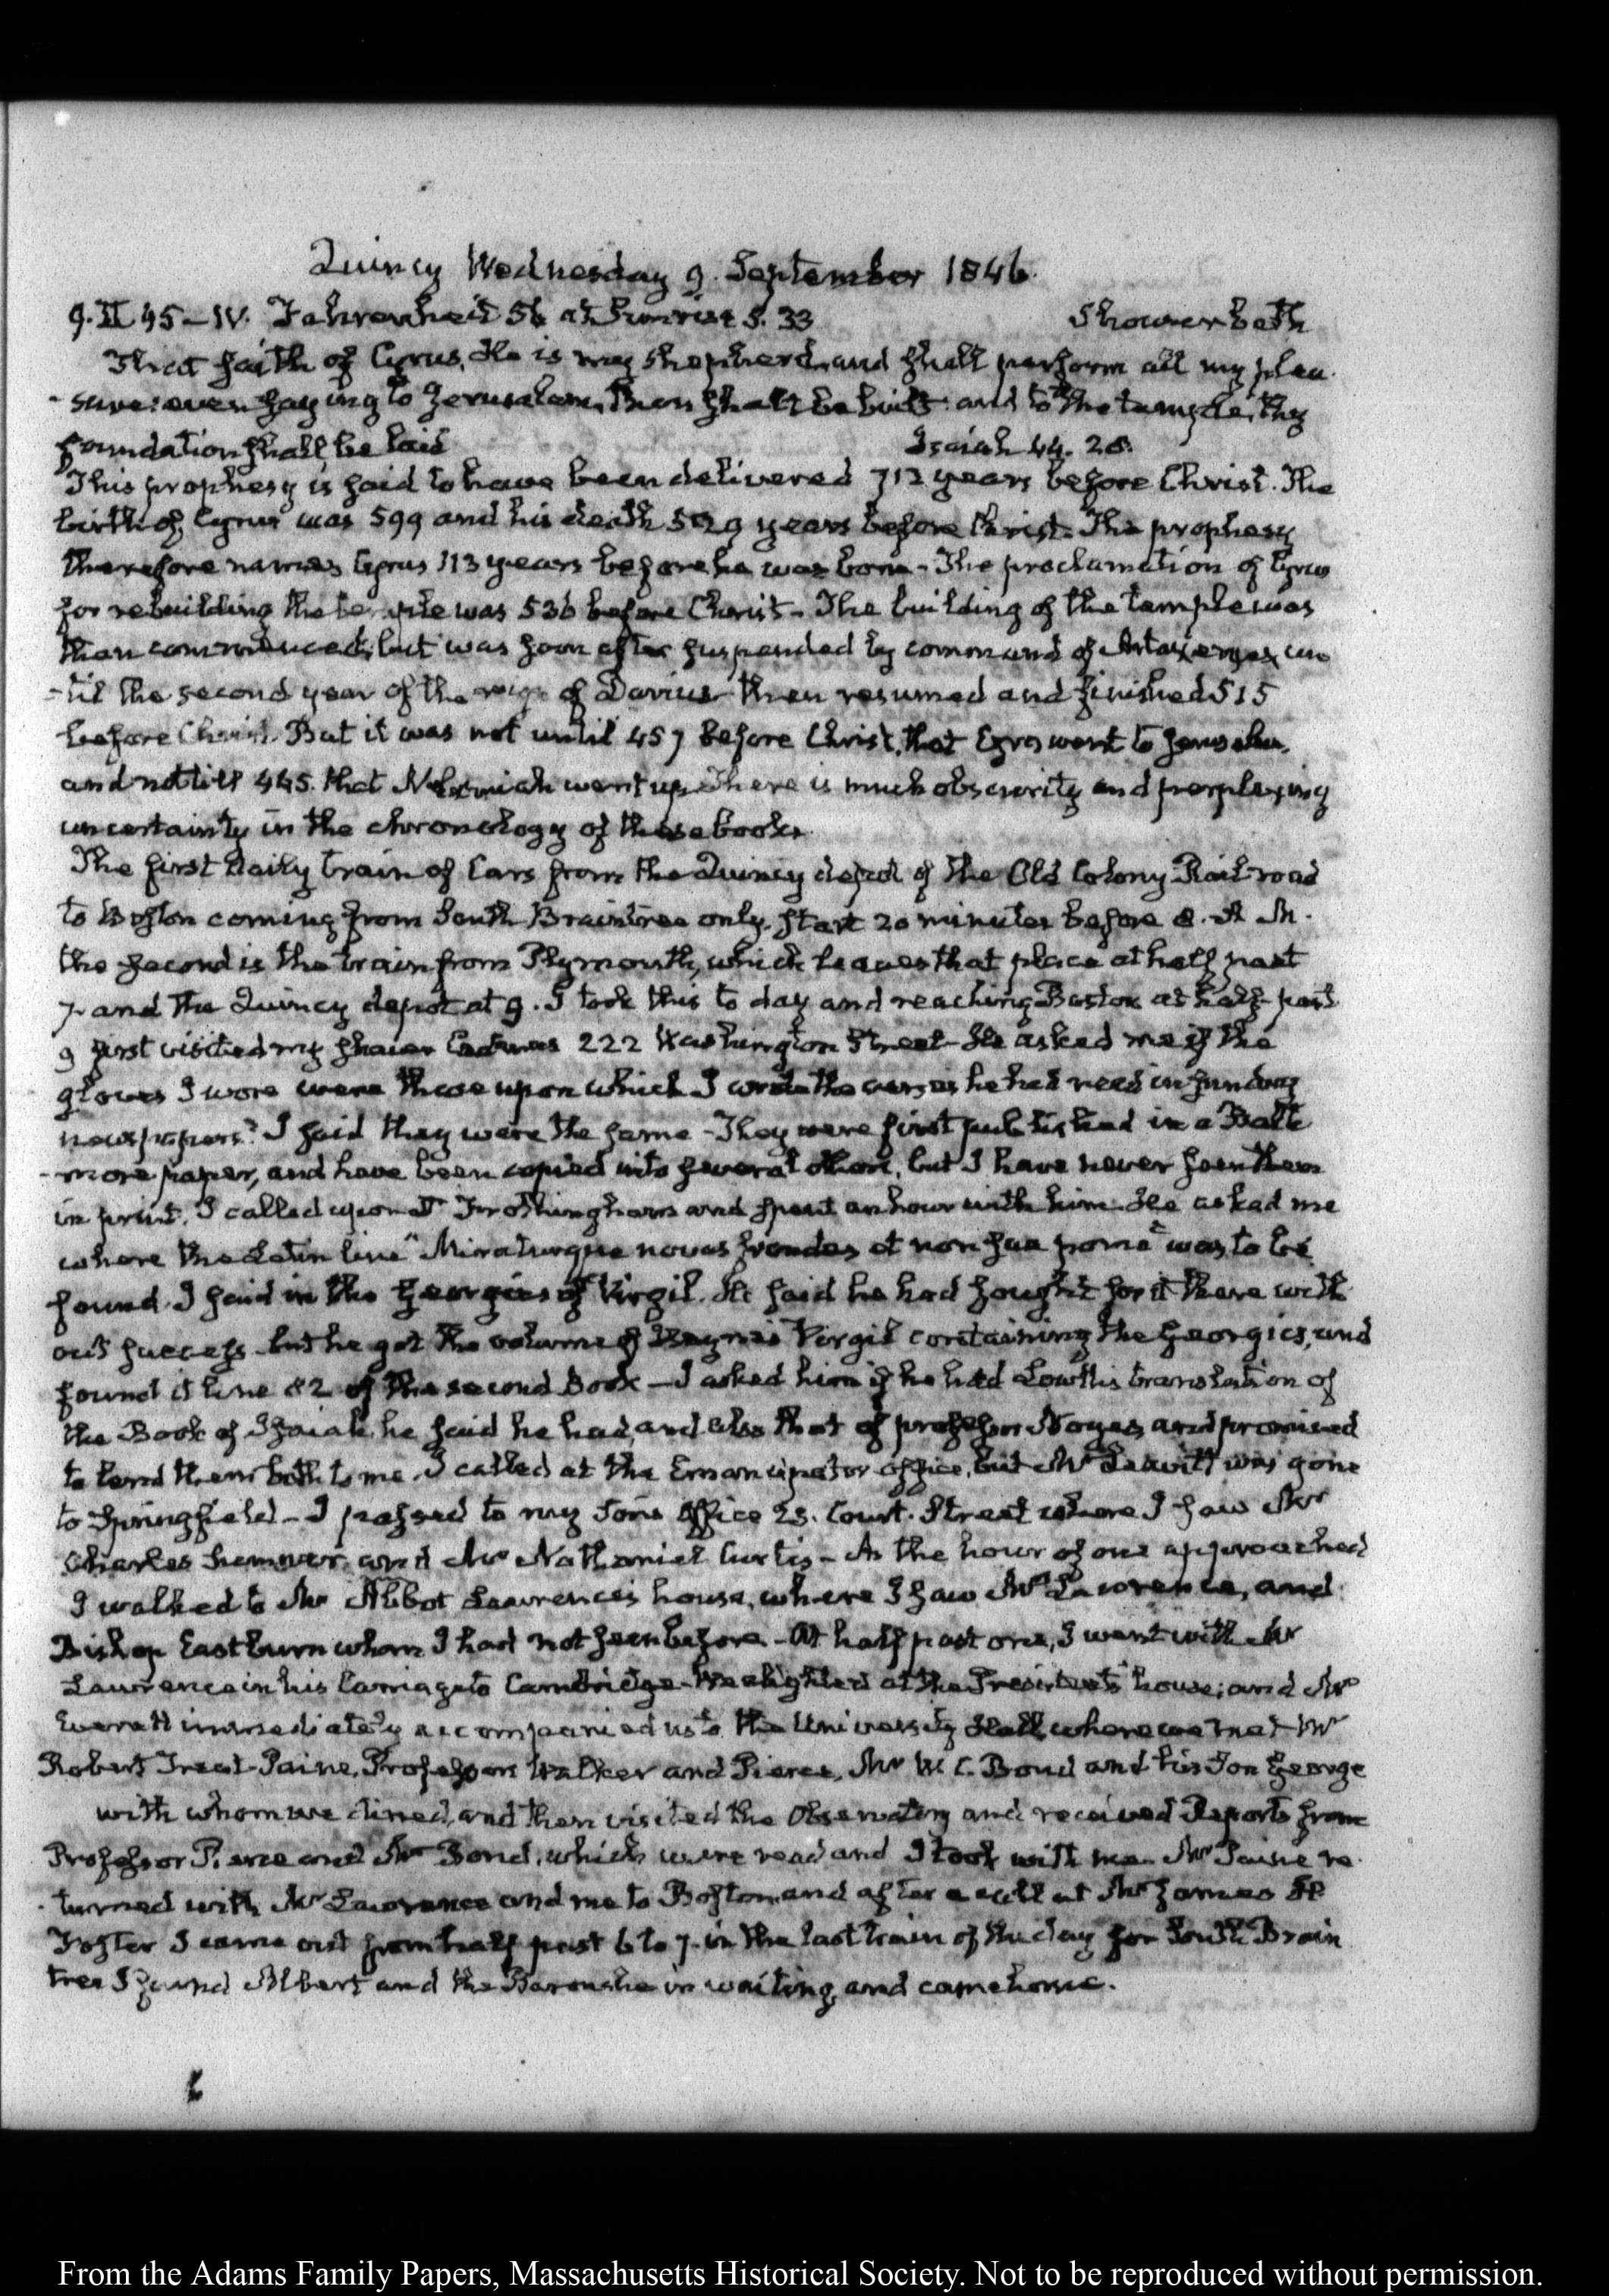 Quincy Wednesday 9. September 1846.
9. II 45 – IV. Fahrenheit 56 at Sunrise 5. 33 Shower bath
That saith of Cyrus, He is my shepherd, and shall perform all my plea-
-sure: even saying to Jerusalem, Thou shalt be built: and to the temple, thy
foundation shall be laid Isaiah 44. 28.
This prophesy is said to have been delivered 712 years before Christ. The
birth of Cyrus was 599 and his death 529 years before Christ. The prophesy
therefore names Cyrus 113 years before he was born – The proclamation of Cyrus
for rebuilding the temple was 536 before Christ – The building of the temple was
then commenced, but was soon after suspended by command of Artaxerxes un
-til the second year of the reign of Darius – then resumed and finished 515
before Christ. But it was not until 457 before Christ, that Ezra went to Jerusalem,
and not till 445. that Nehemiah went up. There is much obscurity and perplexing
uncertainty in the chronology of these books.
The first daily train of Cars from the Quincy depot of the Old Colony Rail-road
to Boston coming from South Braintree only, start 20 minutes before 8. A M.
the second is the train from Plymouth, which leaves that place at half past
7. and the Quincy depot at 9. I took this to day and reaching Boston at half-past
9 first visited my shaver 222 Washington Street – He asked me if the
gloves I wore were those upon which I wrote the verses he had read in sundry
newspapers? I said they were the same – They were first published in a Balti
-more paper, and have been copied into several others, but I have never seen them
in print. I called upon Dr Frothingham and spent an hour with him. He asked me
where the Latin line "Miraturque novas frondes et non sua poma" was to be
found. I said in the Georgics of Virgil. He said he had sought for it there with
out success but he got the volume of Heyne's Virgil containing the Georgics, and
found it line 82 of the second Book – I asked him if he had Lowth's translation of
the Book of Isaiah, he said he had, and also that of professor Noyes, and promised
to lend them both to me. I called at the Emancipator office, but Mr Leavitt was gone
to Springfield – I passed to my Son's Office 23. Court. Street where I saw Mr
Charles Sumner and Mr Nathaniel Curtis – As the hour of one approached
I walked to Mr Abbot Lawrence's house, where I saw Mrs Lawrence, and
Bishop Eastburn whom I had not seen before – At half past one, I went with Mr
Lawrence in his Carriage to Cambridge – We alighted at the President's house; and Mr
Everett immediately accompanied us to the University Hall where we met Mr
Robert Treat Paine, Professors Walker and Pierce, Mr W. C. Bond and his Son George
with whom we dined, and then visited the Observatory and received Reports from
Professor Pierce and Mr Bond, which were read and I took with me. Mr Paine re-
-turned with Mr Lawrence and me to Boston, and after a call at Mr James H
Foster I came out from half past 6 to 7. in the last train of the day for South Brain
tree I found Albert and the Barouche in waiting and came home.
From the Adams Family Papers, Massachusetts Historical Society. Not to be reproduced without permission.